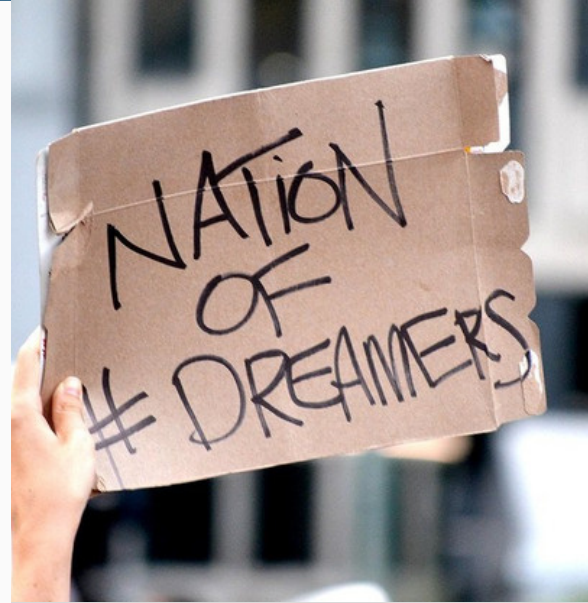 NATiON
OF
# DREAMERS